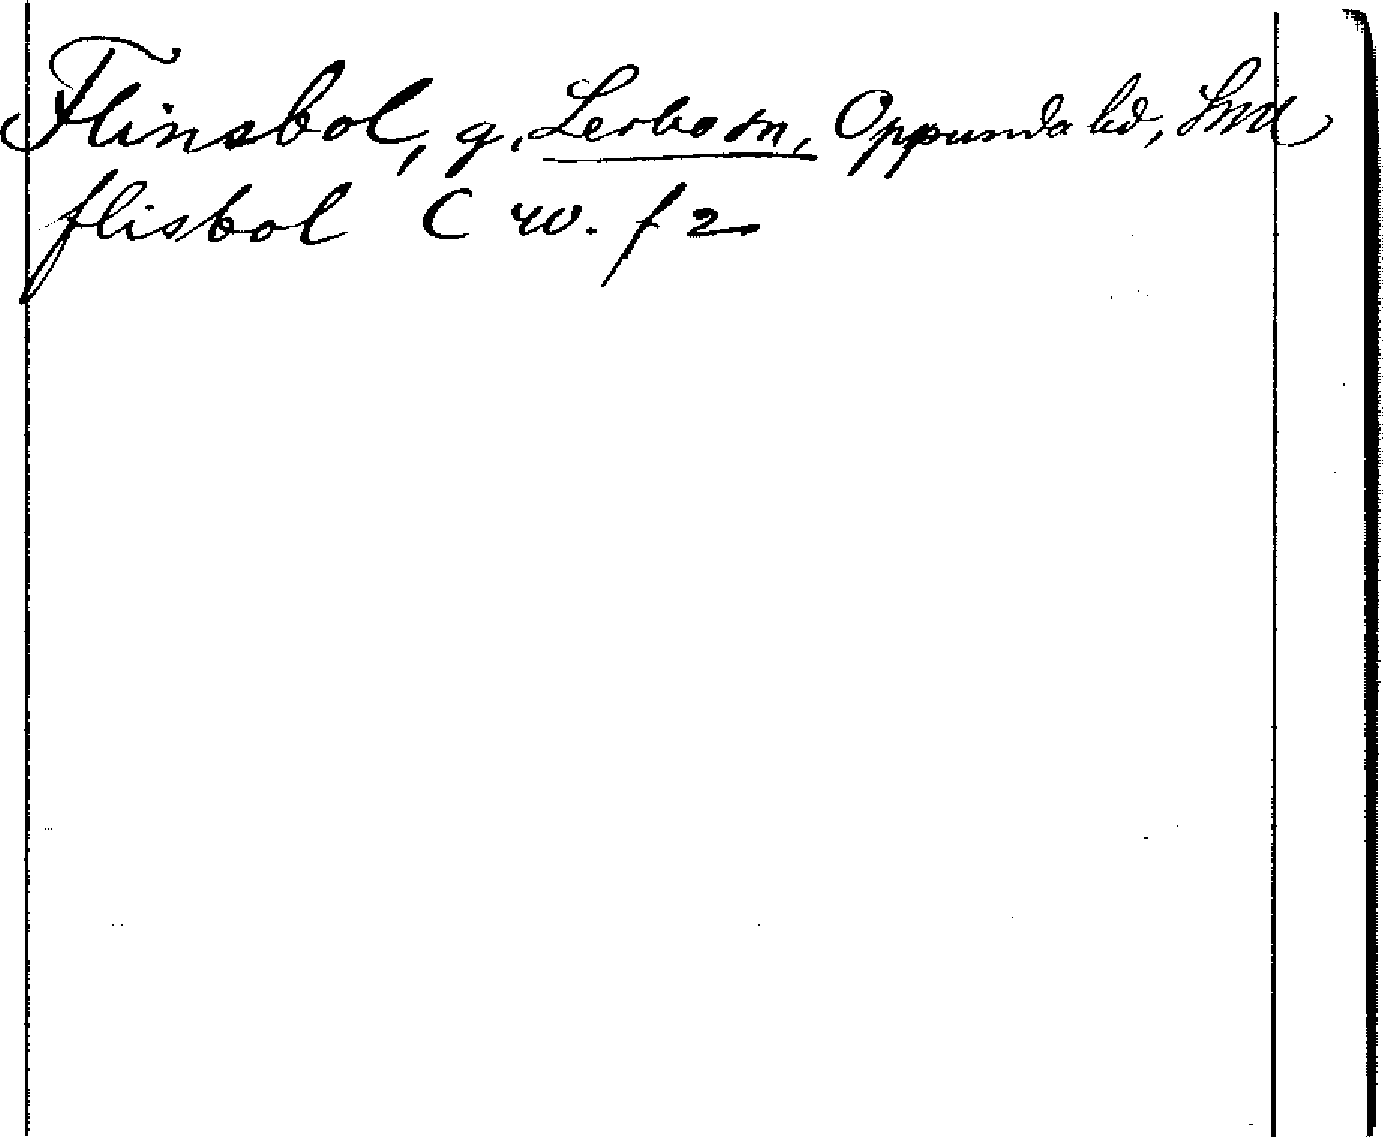 Flinsbol, g, Lerbo sn, Oppunda hd, Smd
flisbol C 40. f 2